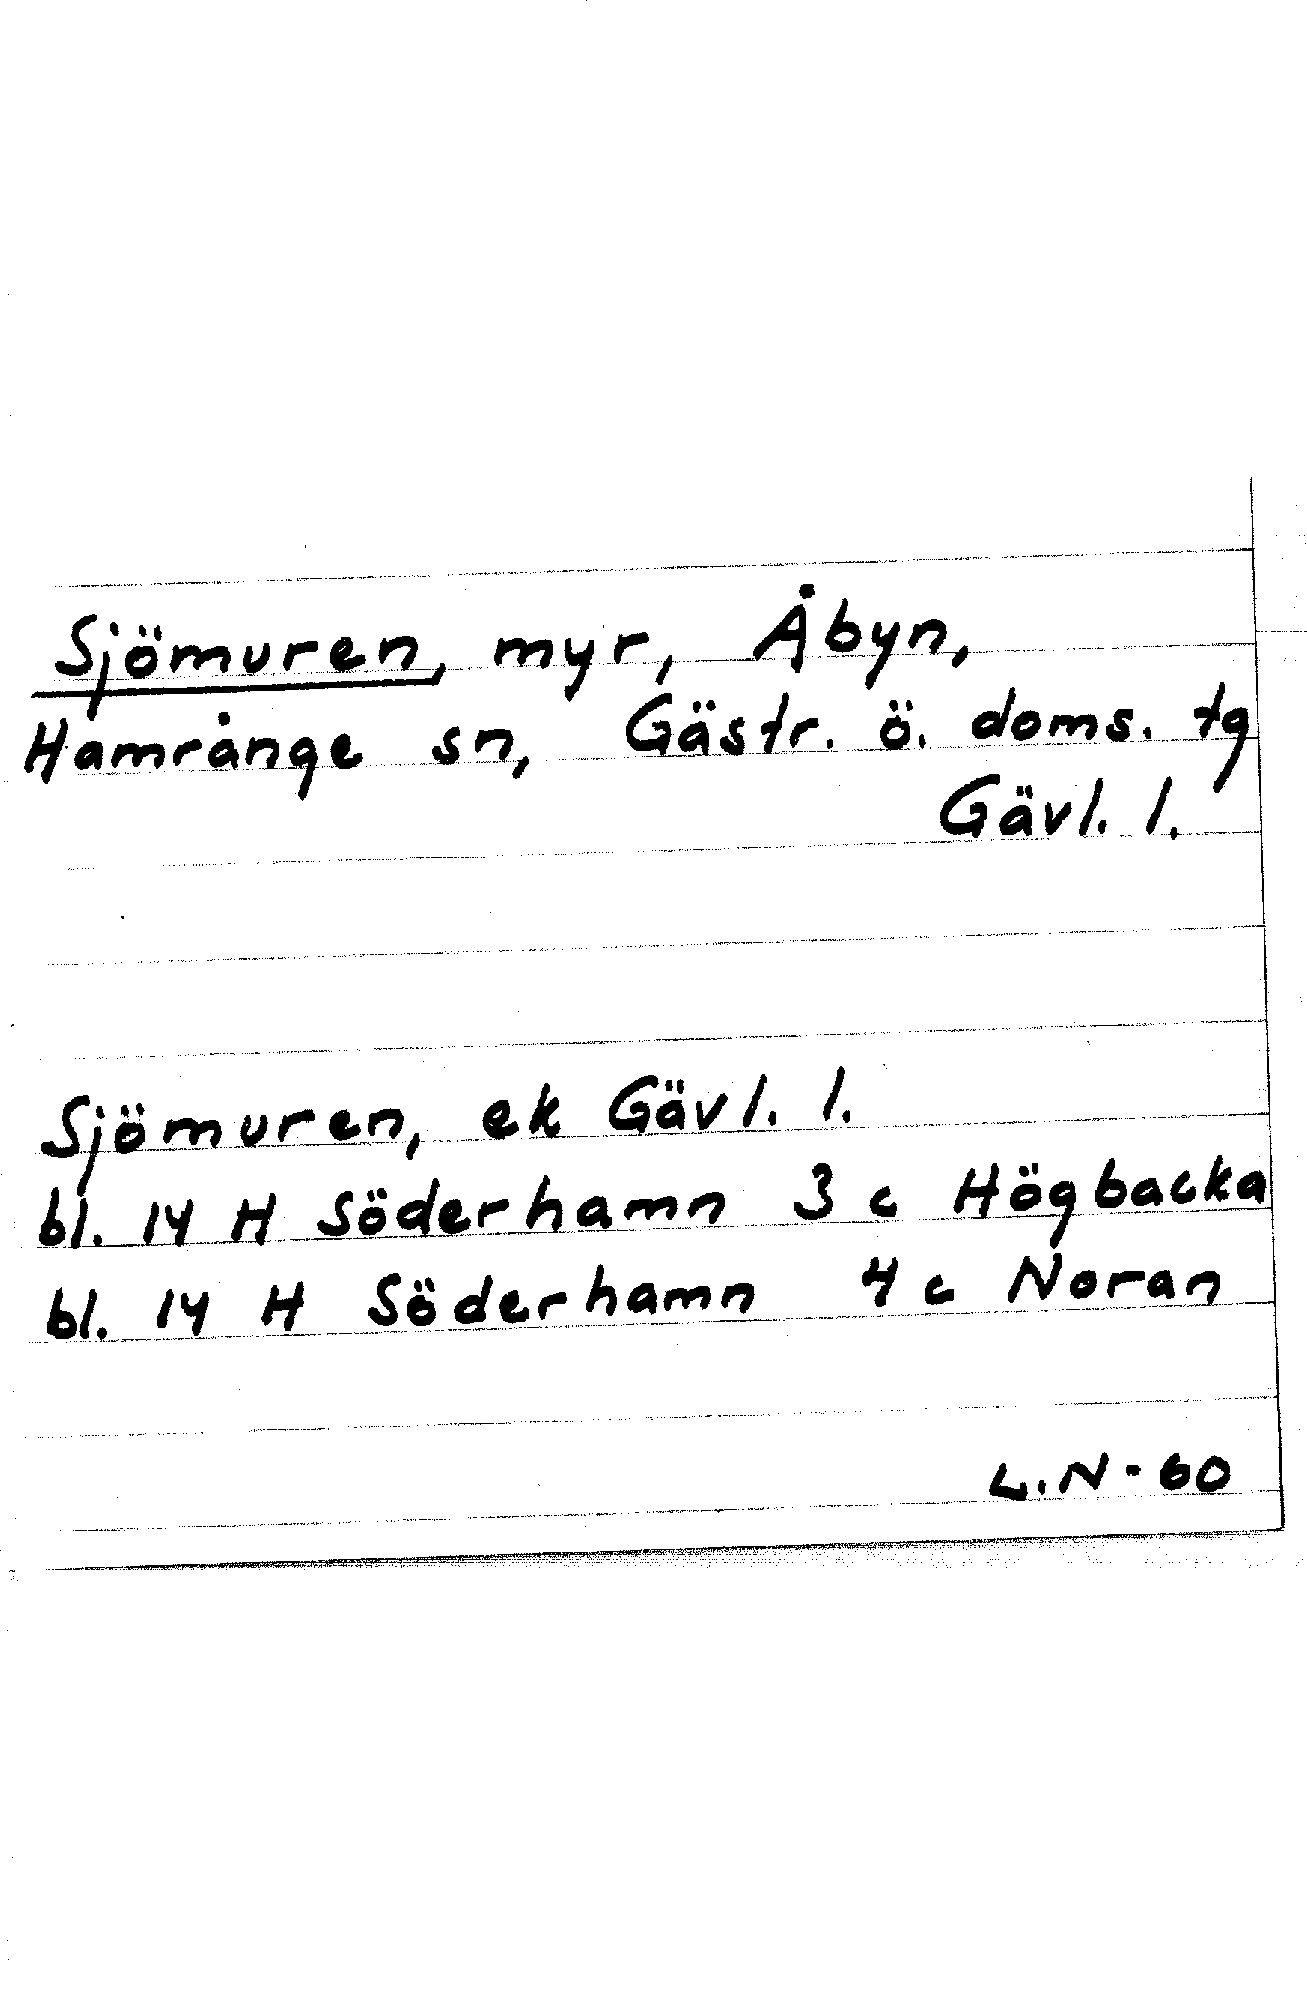 Sjömuren, myr, Åbyn,
Hamrånge sn, Gästr. ö. doms. tg
Gävl. l.
Sjömuren, ek Gävl. l.
bl. 14 H Söderhamn 3 c Högbacka
bl. 14 H Söderhamn 4 c Noran
L.N - 60